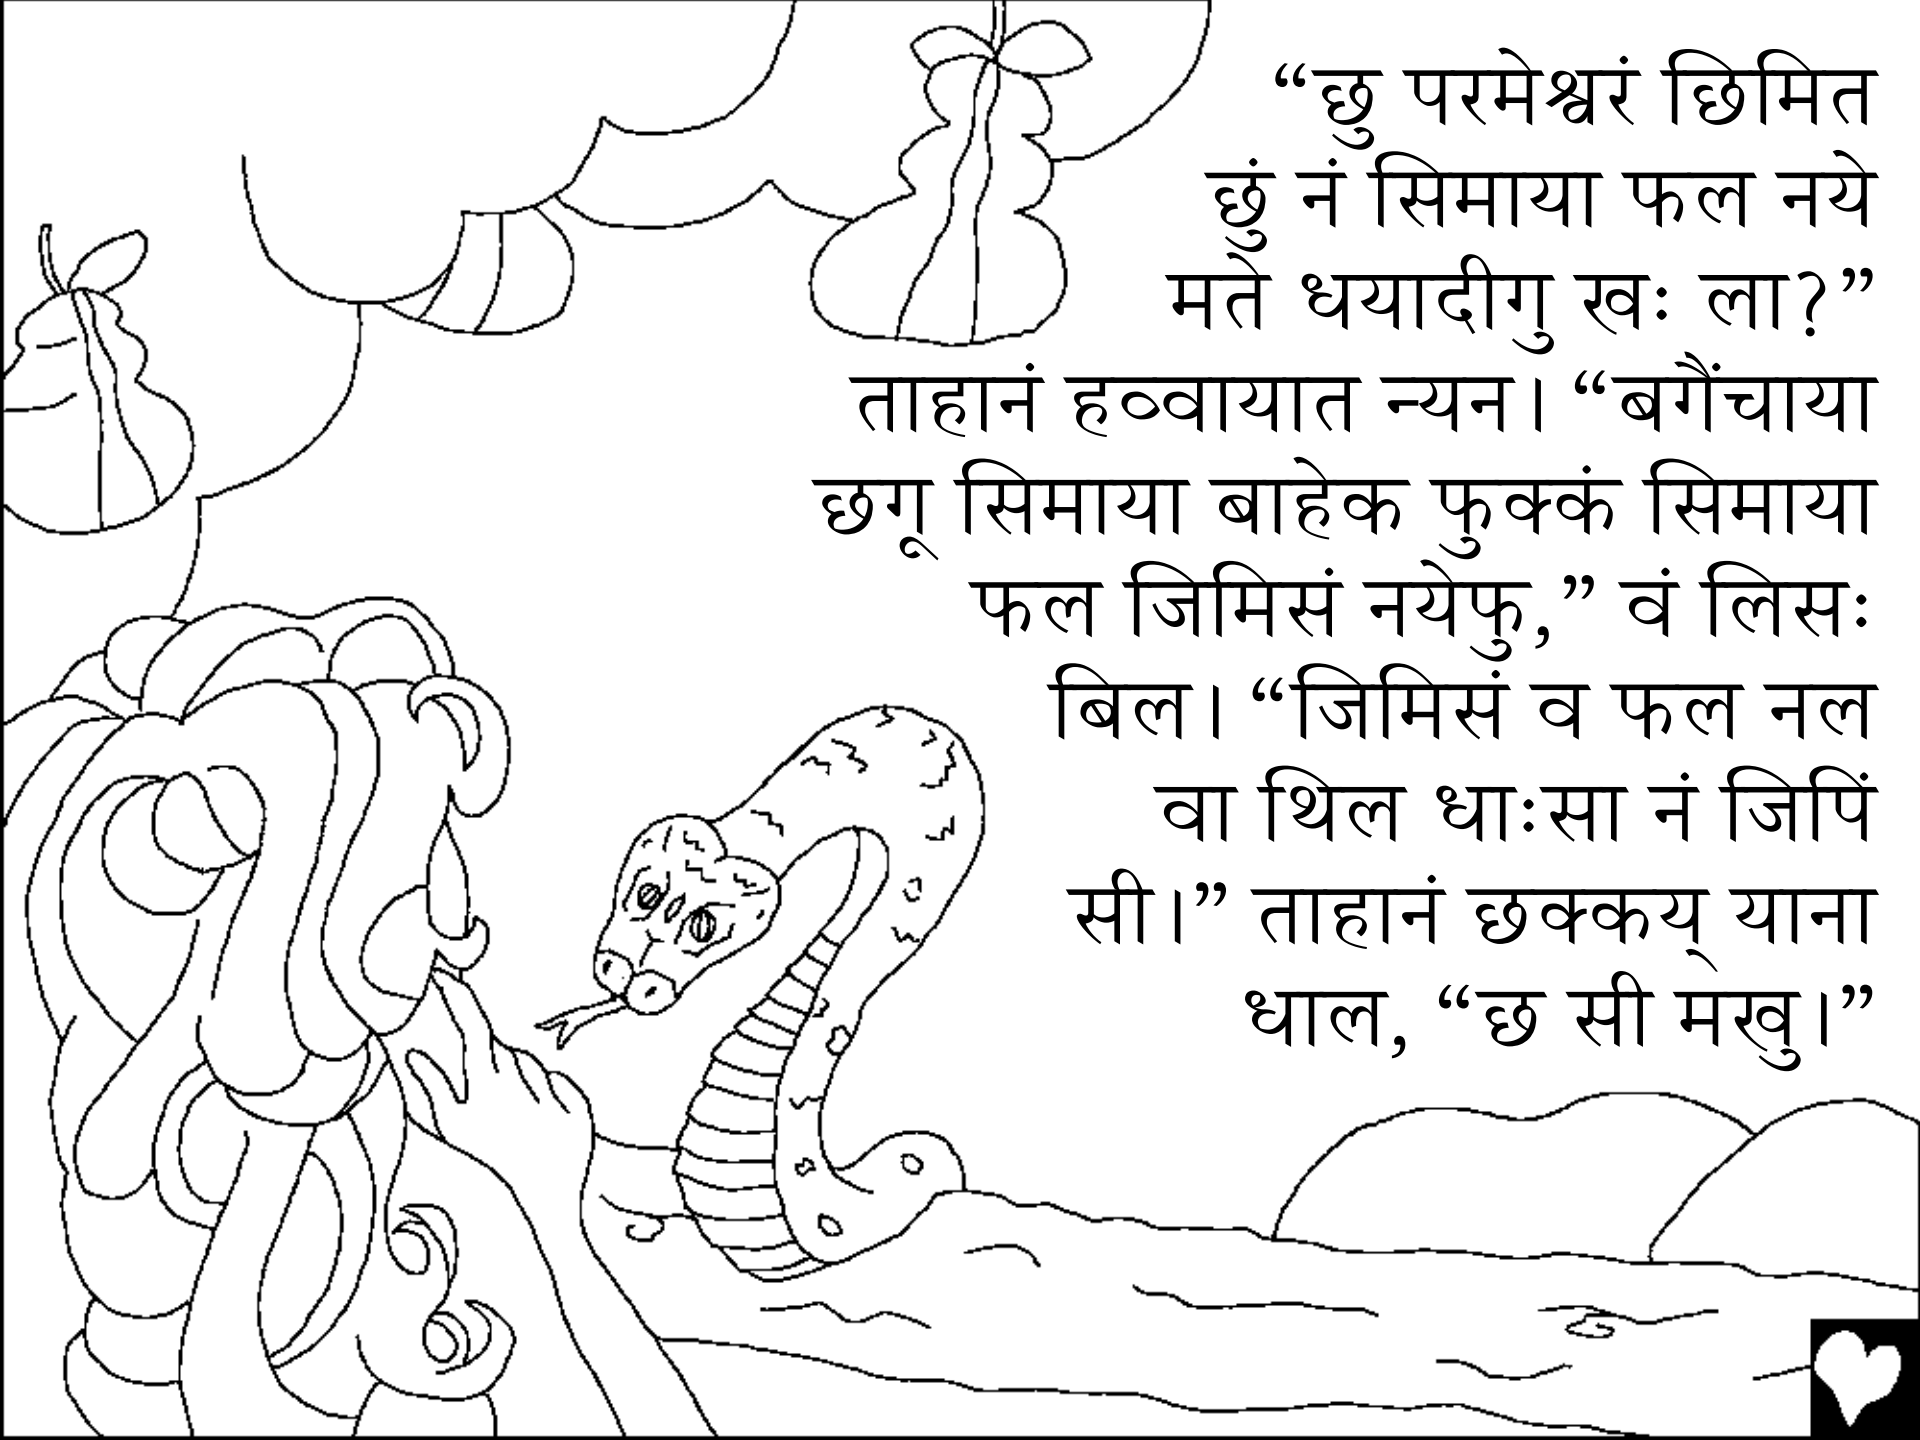 “छु परमेश्वरं छिमित
छुं नं सिमाया फल नये
मते धयादीगु खः ला?”
ताहानं हव्वायात न्यन। “बगैंचाया
छगू सिमाया बाहेक फुक्कं सिमाया
फल जिमिसं नयेफु,” वं लिसः
बिल। “जिमिसं व फल नल
वा थिल धाःसा नं जिपिं
सी।” ताहानं छक्कय् याना
धाल, “छ सी मखु।”